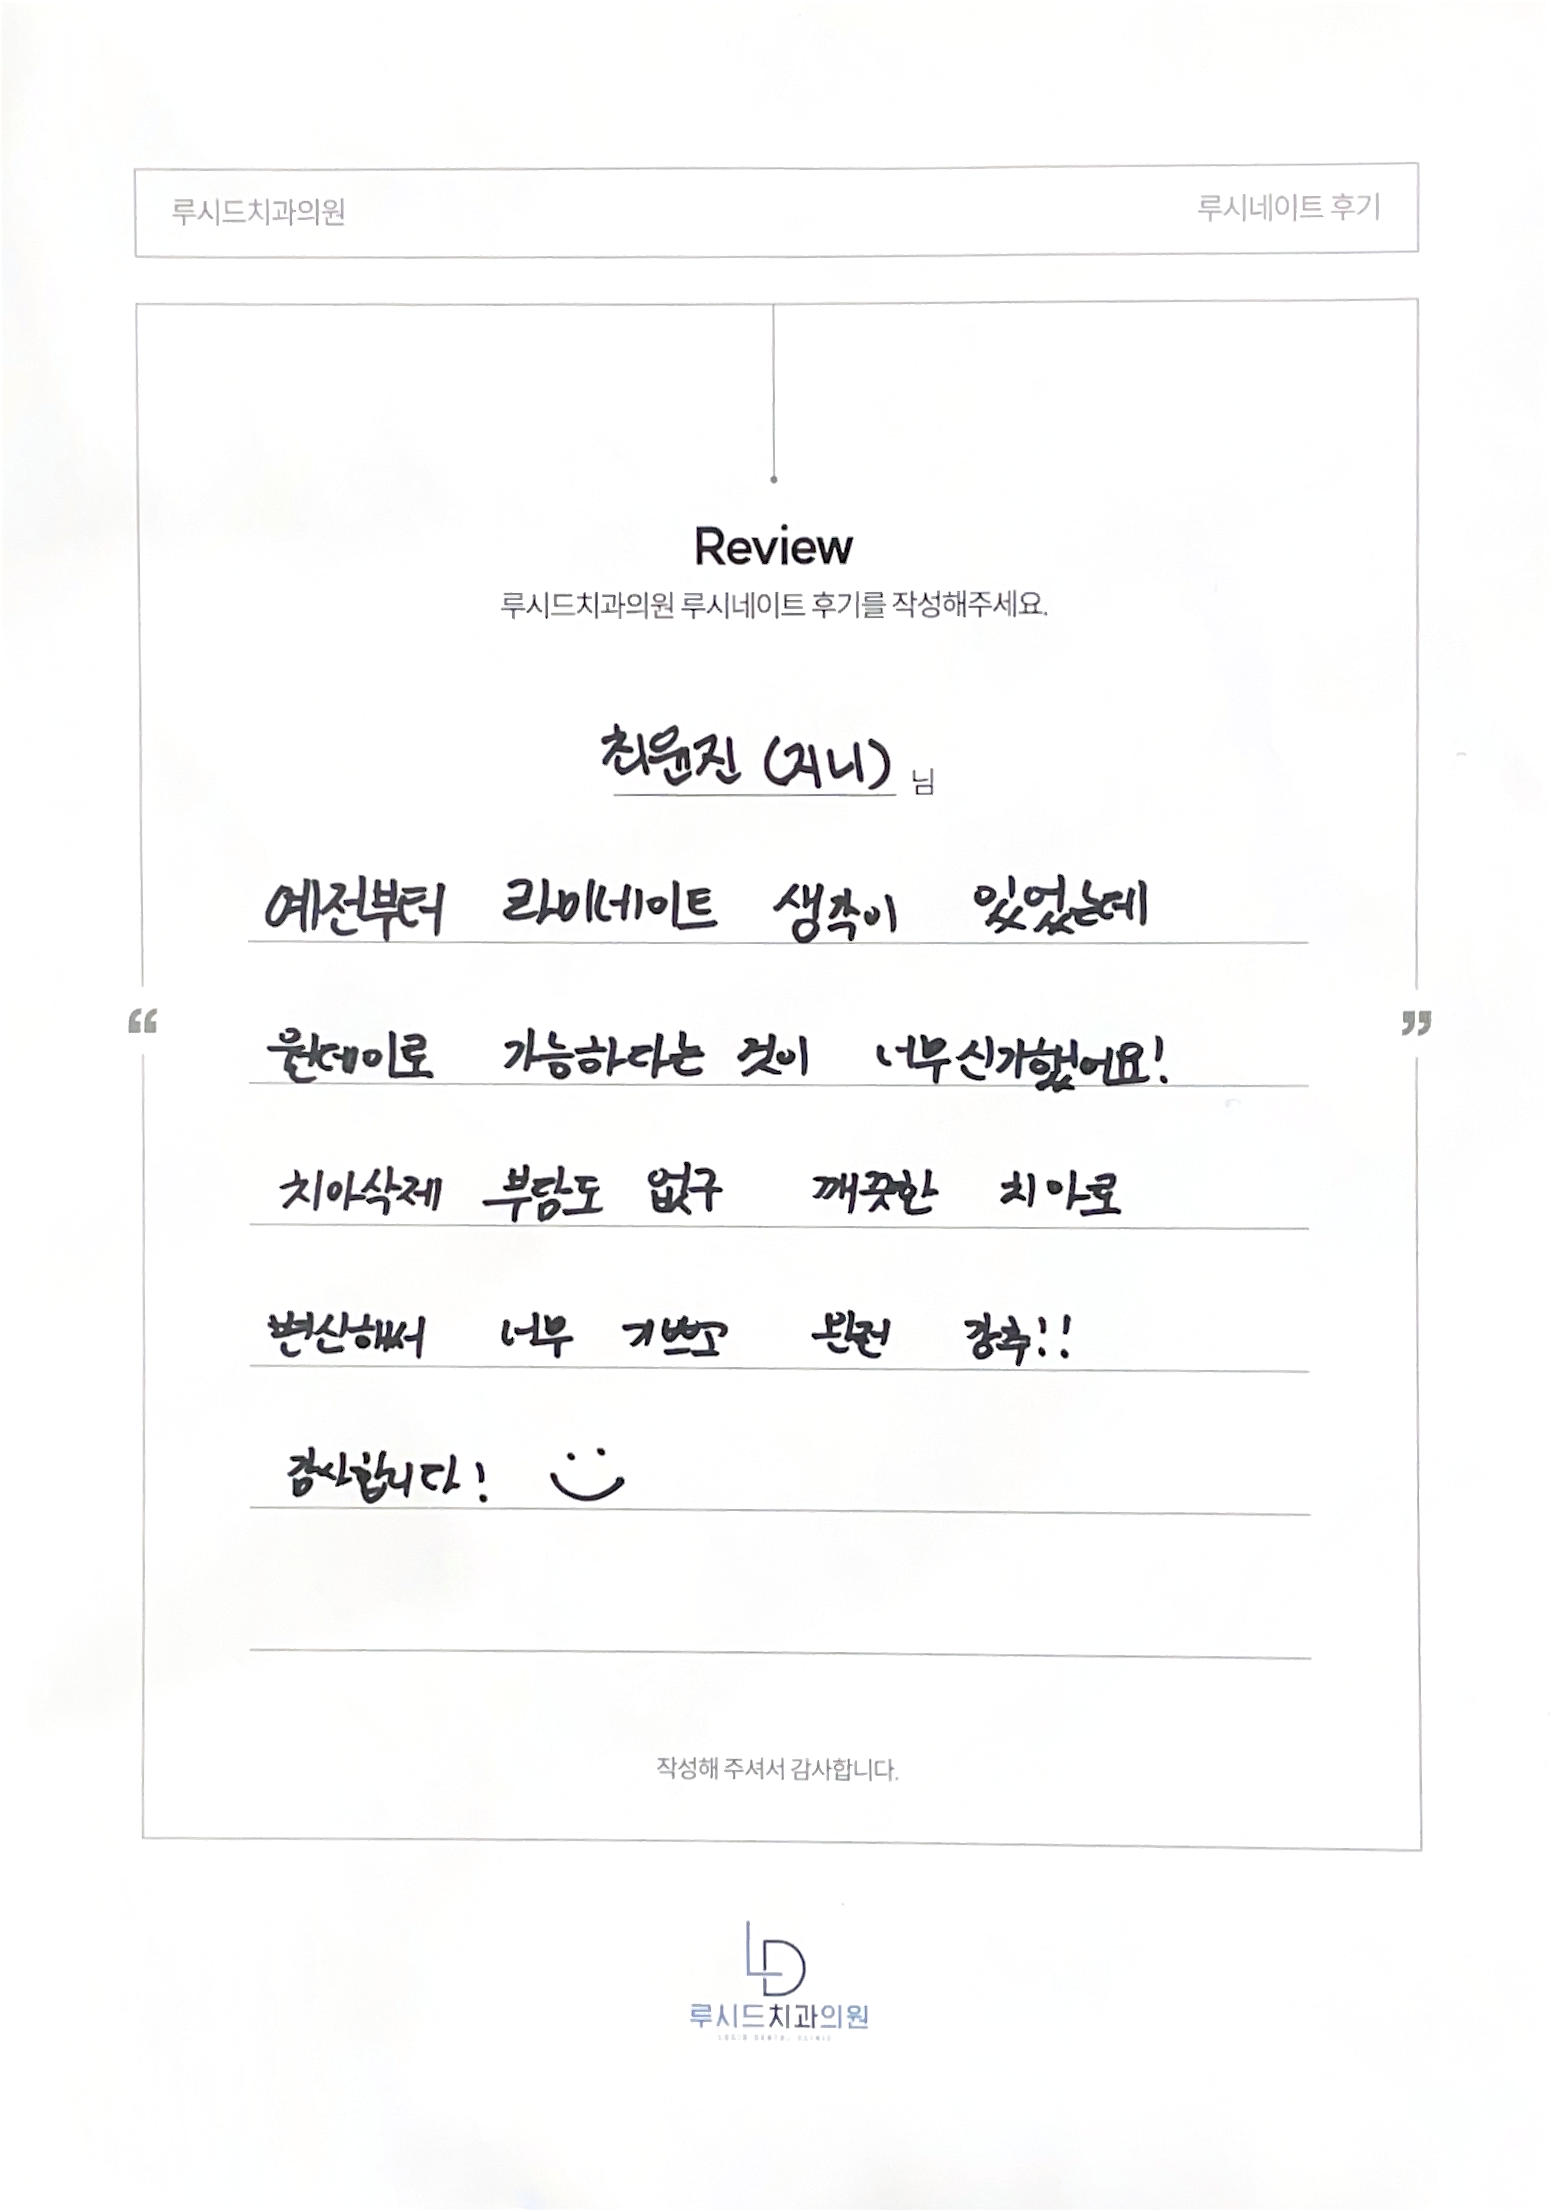 루시드치과의원
루시네이트 후기
Review
루시드치과의원 루시네이트 후기를 작성해주세요.
최윤진 (지니) 님
예전부터 라미네이트 생각이 있었는데
“ ”
원데이로 가능하다는 것이 너무신기했어요!
치아삭제 부담도 없구 깨끗한 치아로
변신해서 너무 기쁘고 완전 강추!!
감사합니다!
작성해 주셔서 감사합니다.
LD
루시드치과의원